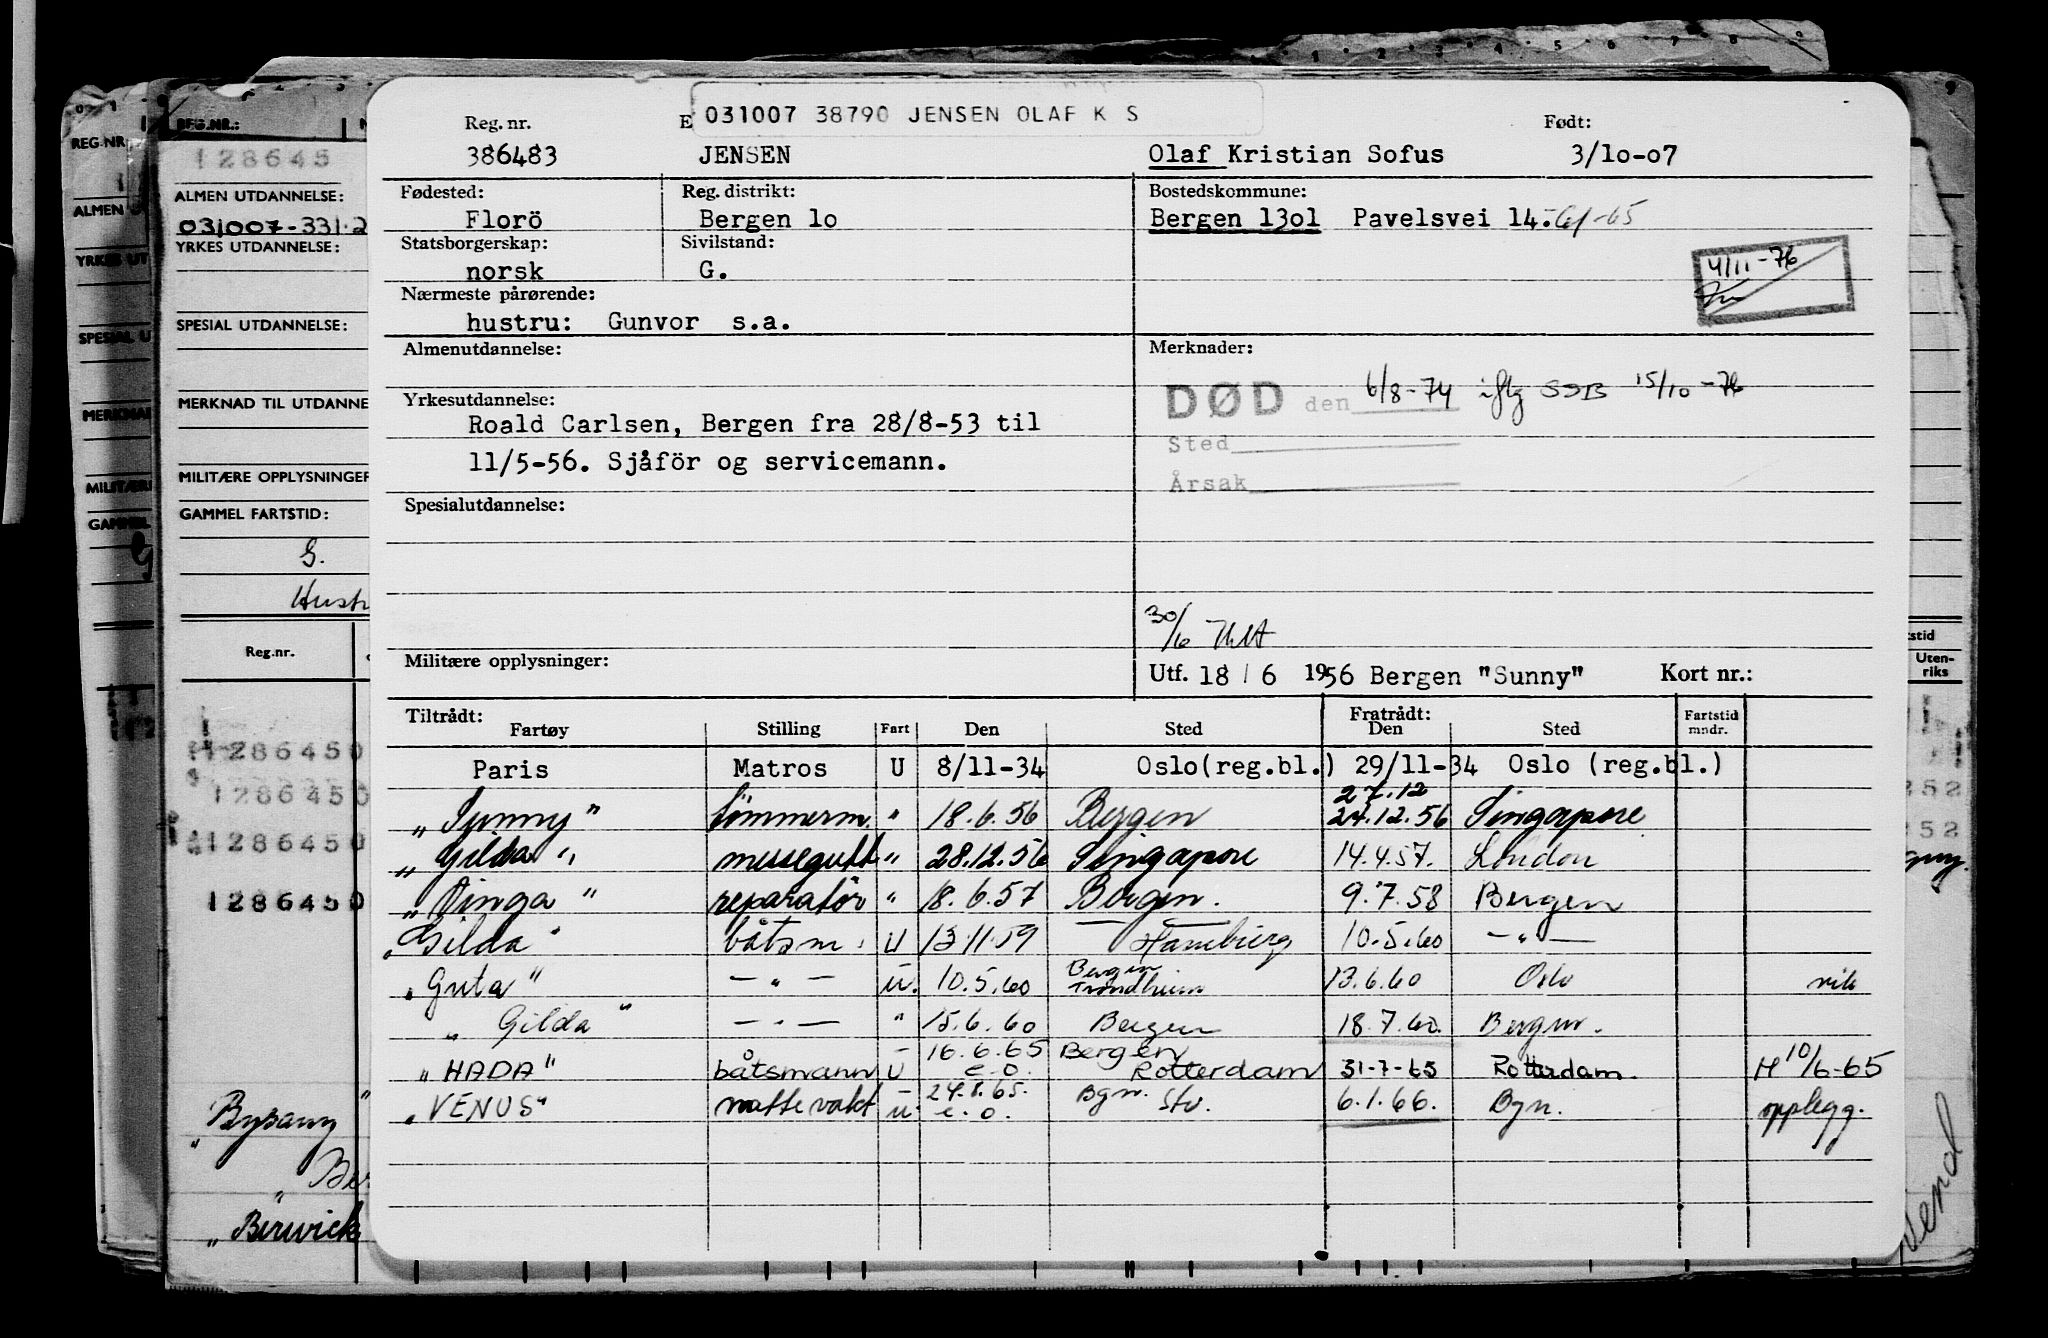 031007 38790 JENSEN OLAF K S
Reg. nr. E Født:
386483 JENSEN Olaf Kristian Sofus 3/10-07
Fødested: Reg. distrikt: Bostedskommune:
Florö Bergen 10 Bergen 1301 Pavelsvei 14. 61-65
Statsborgerskap: Sivilstand:
norsk G.
4/11-76
Nærmeste pårørende:
hustru: Gunvor s.a.
Almenutdannelse: Merknader:
DØD den 6/8-74 iflg SSB 15/10-76
Yrkesutdannelse:
Roald Carlsen, Bergen fra 28/8-53 til
Sted
11/5-56. Sjåför og servicemann.
Årsak
Spesialutdannelse:
30/6
Militære opplysninger:
Utf. 18/6 1956 Bergen "Sunny" Kort nr.:
Tiltrådt: Fratrådt:
Fartøy Stilling Fart Den Sted Den Sted Fartstid mndr.
Paris Matros U 8/11-34 Oslo(reg.bl.) 29/11-34 Oslo (reg.bl.)
27.12
"Sunny" tömmerm. " 18.6.56 Bergen 24.12.56 Singapore
"Gilda" messegutt " 28.12.56 Singapore 14.4.57. London
"Vinga" reparatör " 18.6.57 Bergen. 9.7.58 Bergen
"Gilda" båtsm. U 13.11.59 Hamburg 10.5.60 — " —
"Guta" — " — u. 10.5.60 Bergen Trondheim 13.6.60 Oslo vik
"Gilda" — " — " 15.6.60 Bergen 18.7.60. Bergen.
16.6.65 Bergen
"HADA" båtsmann U e.o. Rotterdam 31-7-65 Rotterdam. H 10/6-65
24.8.65. Bgn.
"VENUS" nattevakt u e.o. Stv. 6.1.66. Bgn. opplegg.
REG.NR.:
128645
ALMEN UTDANNELSE:
031007-331 2
YRKES UTDANNELSE:
SPESIAL UTDANNELSE:
MERKNAD TIL UTDANNE
MILITÆRE OPPLYSNINGER
GAMMEL FARTSTID:
G.
Hust
Reg.nr.
1286450
1286450
1286450
1286450
"Berwick
REG.NR
ALMEN
YRKES UT
SPESIAL U
MERKNAD
MILITÆRE
GAMMEL
stid
Uten-
riks
252
252
Vend